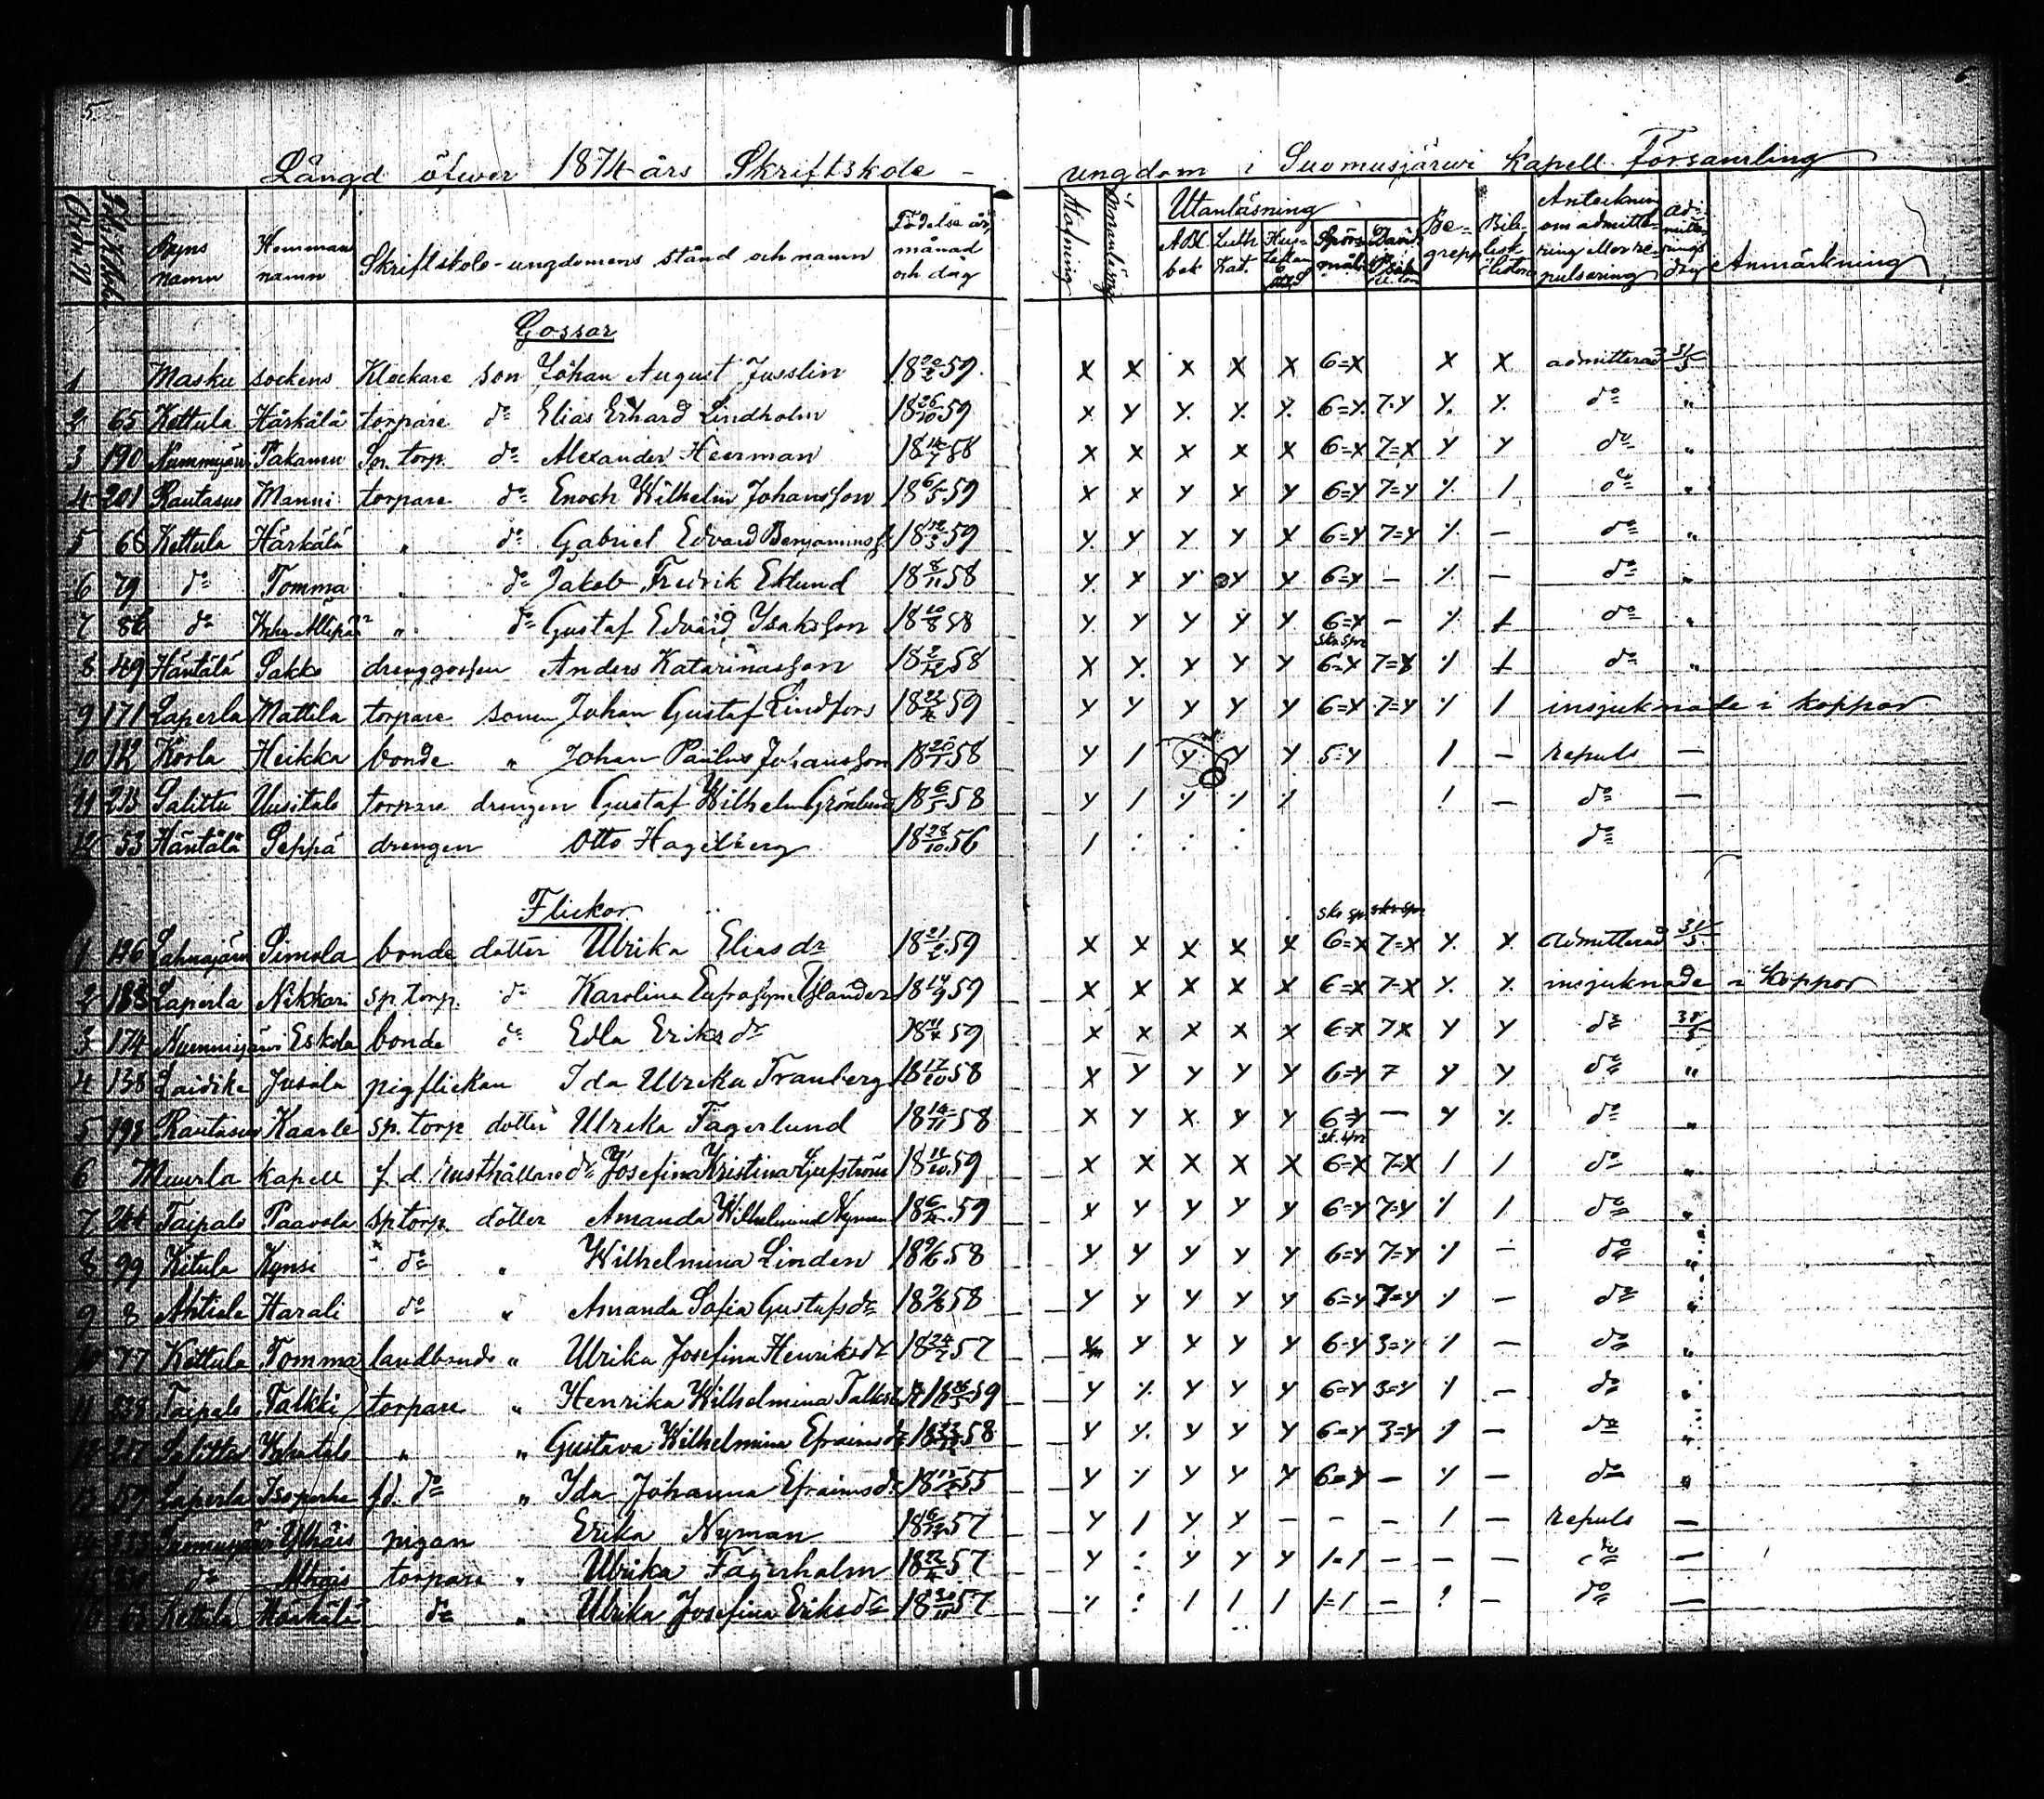 5.
6
Längd öfwer 1874 års Skriftskole - ungdom i Suomusjärwi Kapell Församling
Byns namn Hemmans namn Skriftskole-ungdomens stånd och namn Födelse år månad och dag Stafning Innanläsning Utanläsning ABC bok Luth Kat. Hustaflan Spörsmål Davids Psalm Begrepp Bibelhistoria Anteckning om admittering eller repulsering Admitterings dag Anmärkning
Gossar
1 Masku sockens Klockare son Johan August Jusslin 18 20/2 59. x x x x x 6=x x x admitterad 31/5
2 65 Kettula Härkälä torpare do Elias Erhard Lindholm 18 26/10 59 x y y. y. y. 6=y. 7=y y. y. do "
3 190 Nummijärvi Pakamu Sp. torp. do Alexander Heerman 18 14/7 58 x x x x x 6=x 7=x y y do "
4 201 Rautasuo Manni torpare do Enoch Wilhelm Johansson 18 6/5 59 x x y x y 6=y 7=y y. 1 do "
5 68 Kettula Härkälä " do Gabriel Edvard Benjaminss. 18 12/3 59 y. y y y y 6=y 7=y y. - do "
6 79 do Tomma " do Jakob Fredrik Eklund 18 8/11 58 y. y y y y 6=y - y. - do "
7 86 do " do Gustaf Edvard Isaksson 18 10/8 58 y y y y y 6=y - y. do "
8 49 Häntälä Sakko drenggossen Anders Katarinasson 18 2/12 58 x y. y y y 6=y 7=y y do "
9 171 Laperla Mattila torpare sonen Johan Gustaf Lindfors 18 22/4 59 y y y y y 6=y 7=y y 1 insjuknade i koppor
10 112 Korla Heikka bonde " Johan Paulus Johansson 18 25/1 58 y 1 y y y 5=y 1 - repuls -
11 213 Salittu Uusitalo torpare drengen Gustaf Wilhelm Grönlund 18 6/5 58 y 1 y y y 1 - do -
12 53 Häntälä Seppä drengen Otto Hagelberg 18 28/10 56 1 : : : do
Flickor
1 126 Lahnajärvi Simola bonde dotter Ulrika Elias dr 18 21/2 59 x x x x x 6=x 7=x y. x admitterad 31/5
2 183 Laperla Nikkari sp. torp. do Karolina Eufrosyne 18 14/9 59 x x x x x 6=x 7=x y. x. insjuknade i koppor
3 174 Nummijärvi Eskola bonde do Edla Eriks dr 18 11/4 59 x x x x x 6=x 7x y y do 31/5
4 138 Laidike Jusola pigflickan Ida Ulrika Tranberg 18 17/10 58 x y y y y 6=y 7 y y do "
5 198 Rautasuo Kaarle sp. torp dotter Ulrika Fagerlund 18 14/11 58 x y x y y 6=y - y y. do "
6 Muurla kapell f. d. rusthållare dr Josefina Kristina 18 12/10 59 x x x x x 6=x 7=x 1 1 do "
7 244 Taipale Paavola sp torp. dotter Amanda Wilhelmina Nyman 18 6/4 59 x y y y y 6=y 7=y y 1 do "
8 99 Kitula Kynsi do " Wilhelmina Linden 18 9/6 58 y y y y y 6=y 7=y y - do "
9 8 Ahtiala Harali do " Amanda Sofia Gustafs dr 58 y y y y y 6=y 7=y y - do "
10 77 Kettula Tomma landbonde " Ulrika Josefina Henriks dr 18 24/2 57 y y y y 6=y 3=y y - do "
11 Taipale Talkki torpare " Henrika Wilhelmina 59 y y. y y y 6=y 3=y y - do "
12 217 Salittu " " Gustava Wilhelmina Efraims dr 58 y y. y y y 6=y 3=y y - do "
13 157 Laperla Isoperhe f.d. do " Ida Johanna Efraims dr 55 y y y y y 6=y - y - do "
14 Suomusjärvi pigan Erika Nyman 57 y 1 y y - - - 1 - repuls -
15 do torpare " Ulrika Fagerholm 18 22/4 57 y : y y y 1=1 - - - do -
16 63 Kettula Härkälä do " Ulrika Josefina Eriks dr 18 30/11 57 y : 1 1 1 1=1 - ! - do -